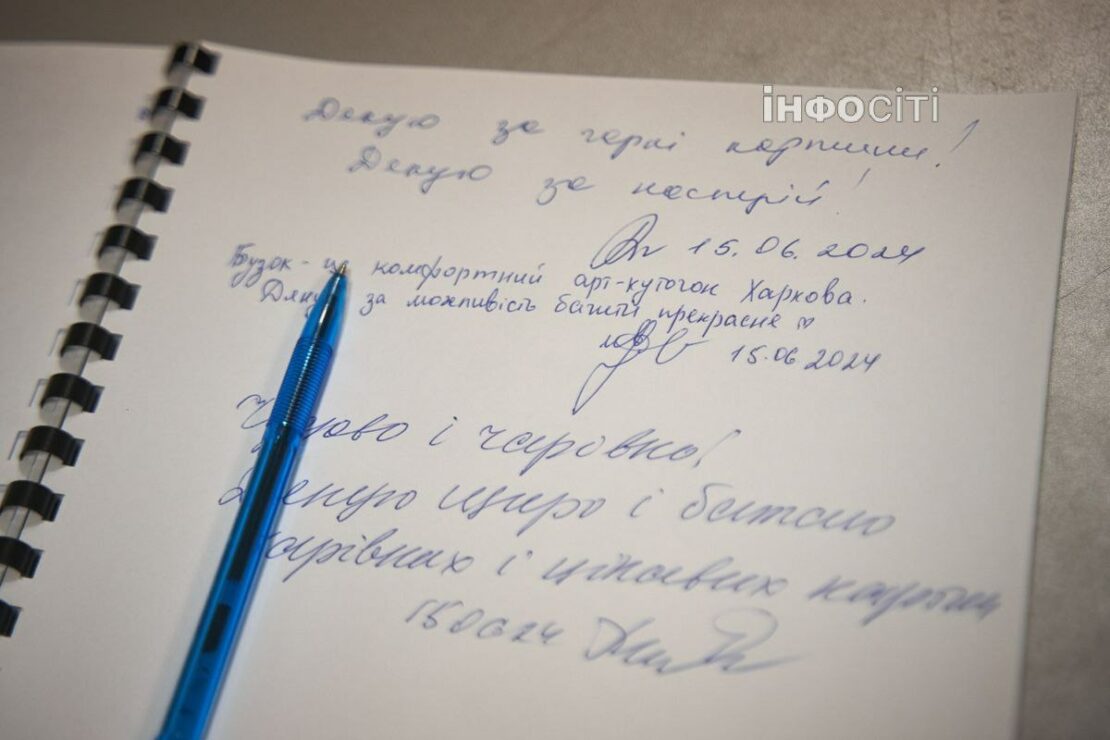 інфосіті
Дякую за гарні картини!
Дякую за настрій!
15.06.2024
Бузок - це комфортний арт-куточок Харкова.
Дякую за можливість бачити прекрасне ♡
15.06.2024
Чудово і чаровно!
Дякую щиро і бажаю
чарівних і цікавих картин
150624